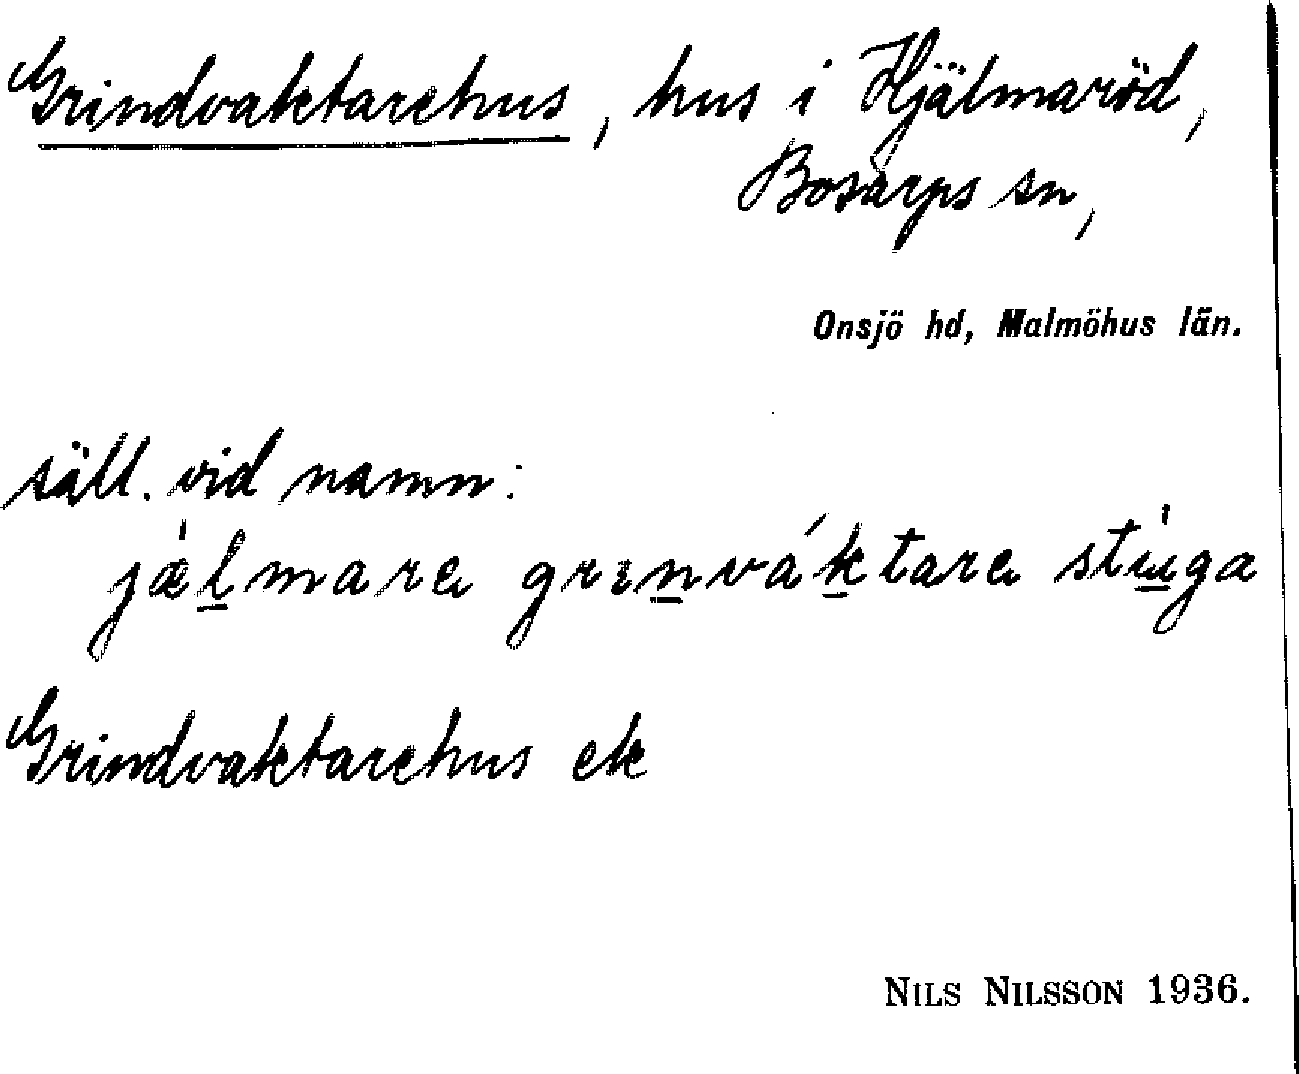 Grindvaktarehus, hus i Hjälmaröd,
Bosarps sn,
Onsjö hd, Malmöhus län.
säll. vid namn:
jæ̀l̲mara grın̲vák̲tara stù̲ga
Grindvaktarehus ek
NILS NILSSON 1936.